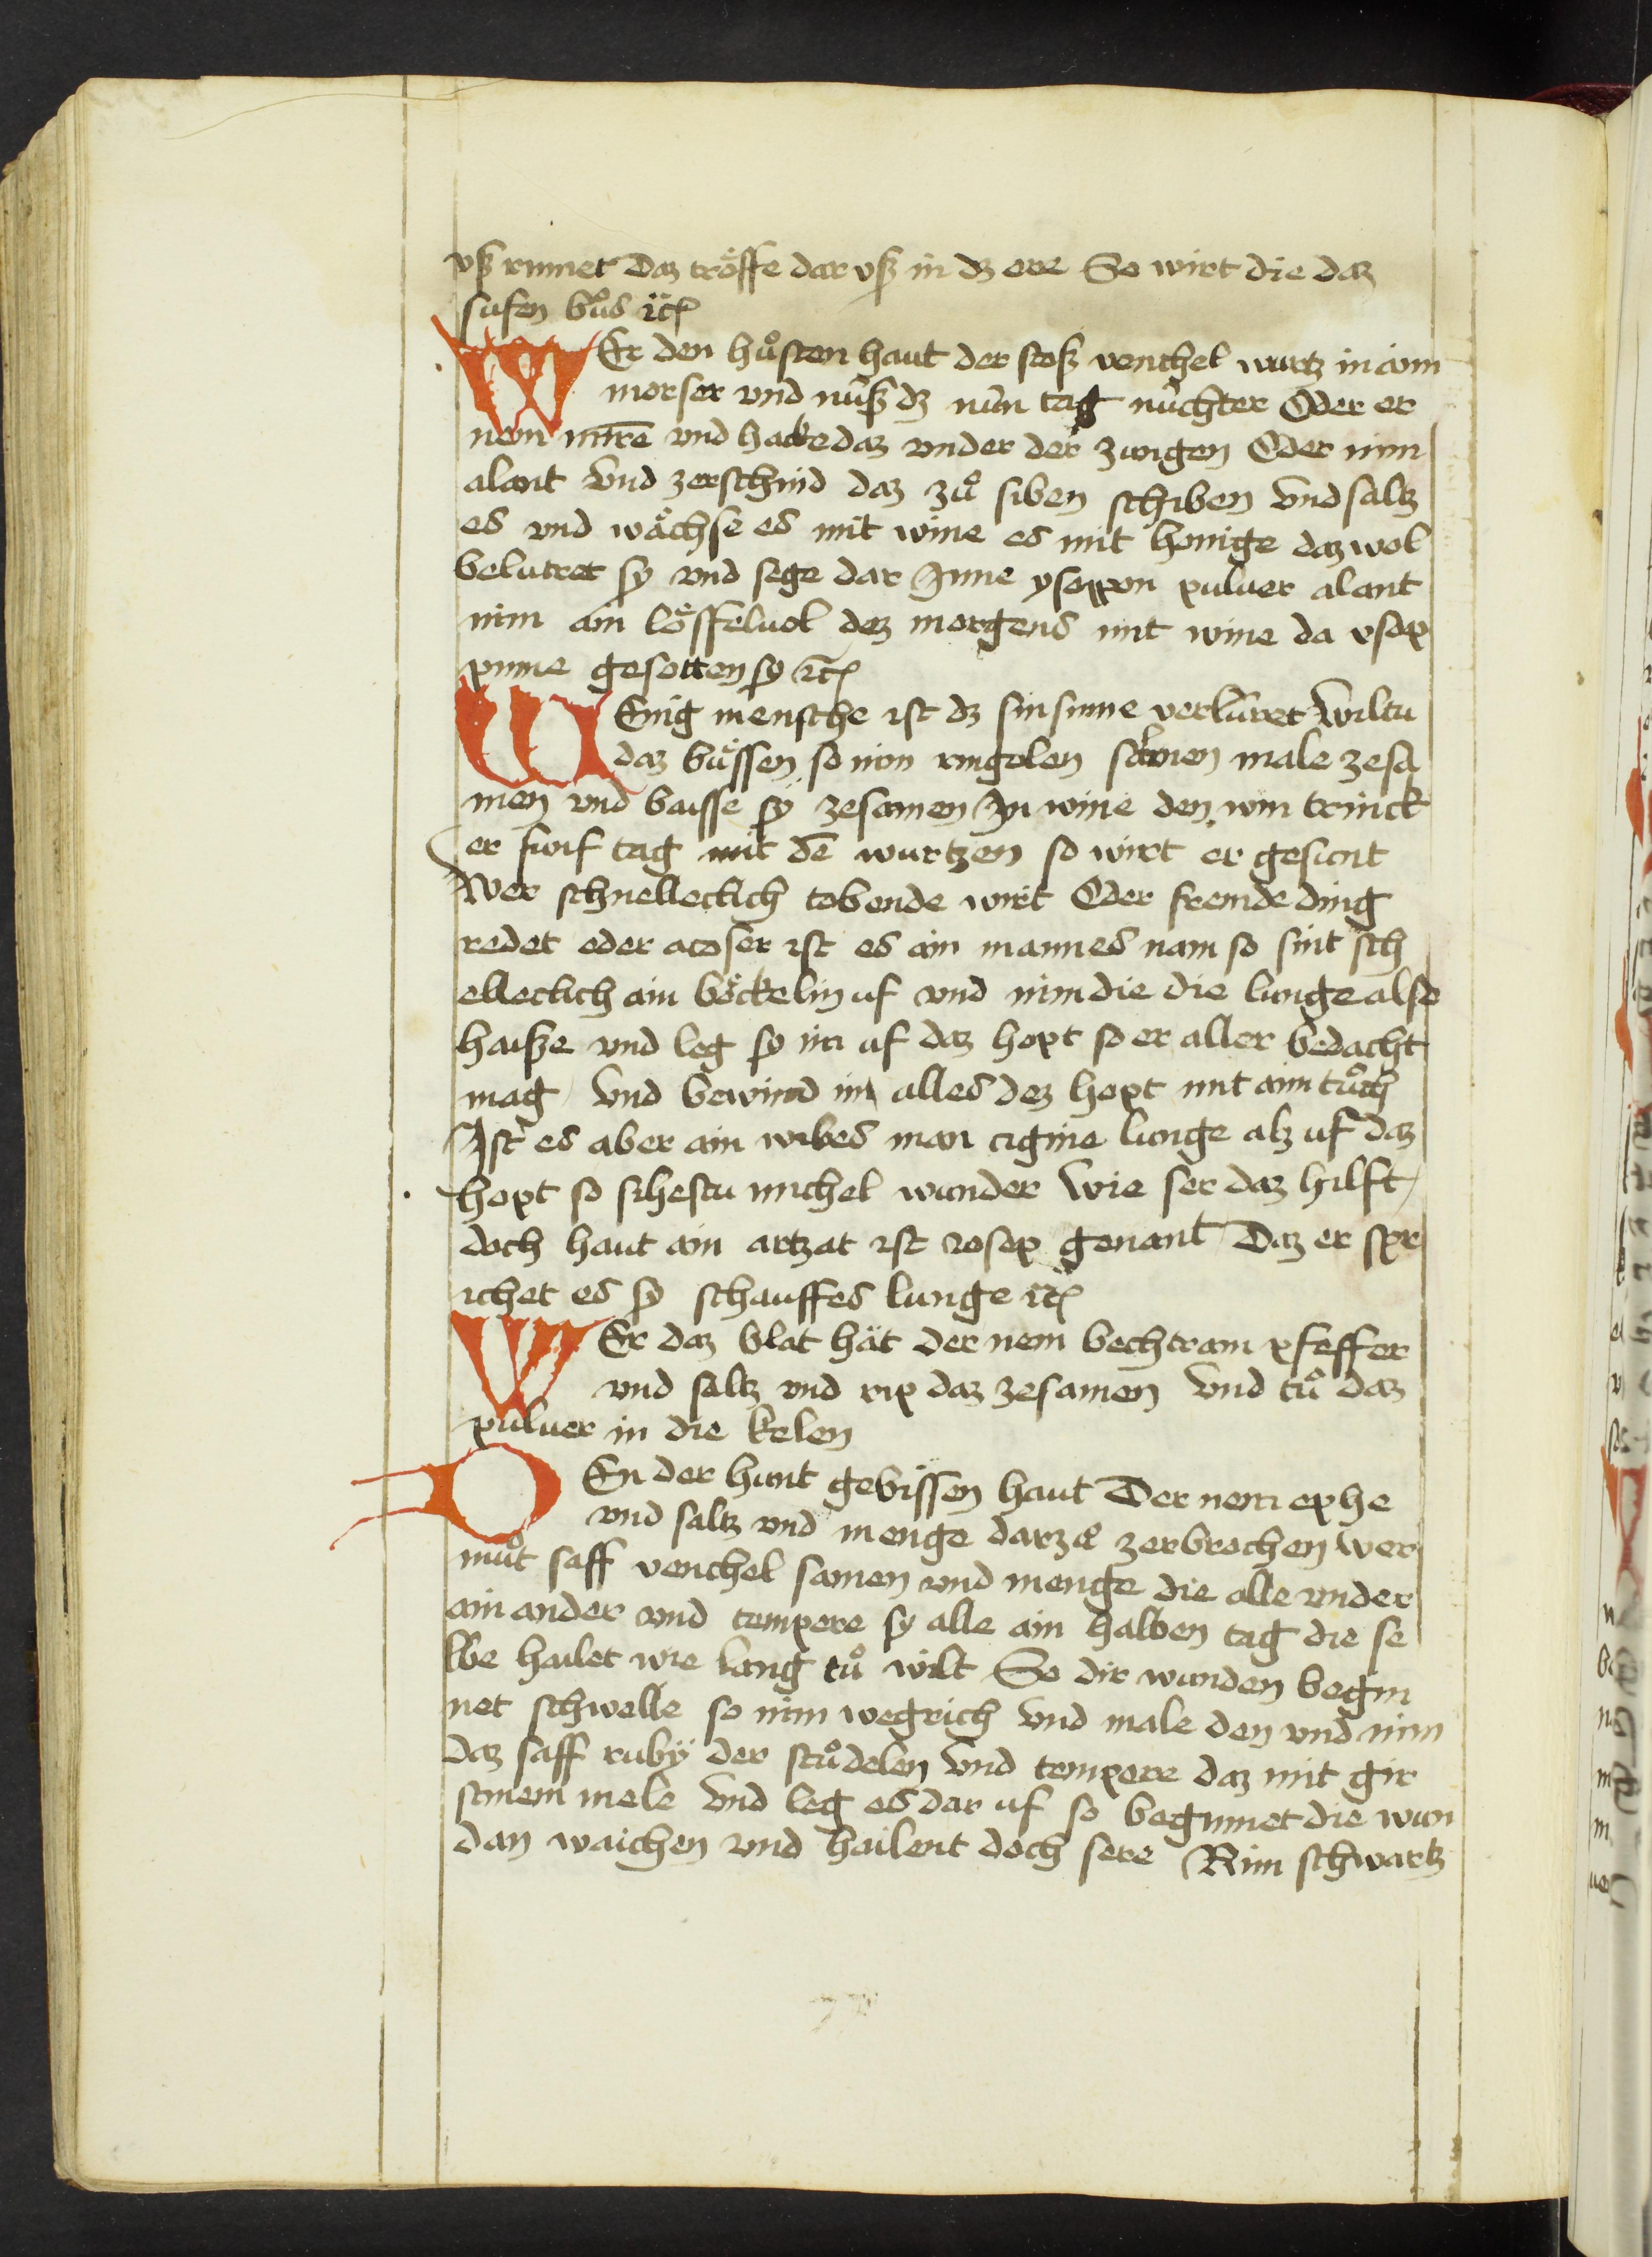 vß rinnet Daz tröffe dar vß in dz ore So wirt die daz
susen bůs ꝛc̃
WEr den hůsten haut der stoß venchel wurtz in aim
morser vnd nüß dz nün tag nüchter Oder er
nem mirre vnd hacke daz vnder der zungen Oder nim
alant vnd zerschnid daz zů siben schiben vnd saltz
es vnd wächse es mit wine es mit honige daz wol
belutret sy vnd sege dar Jnne ysoppon puluer alant
nim ain löffeluol dez morgens mit wine da ysop
pinne gesotten sy ꝛc̃
WEnig mensche ist dz sin sinne verlüret wiltu
daz büssen so nim ringelen samen male zesa
men vnd baisse sy zesamen Jn wine den win trinck
er funf tag mit dē wurtzen so wirt er gesunt
Wer schnelleclich tobende wirt Oder fremde ding
redet oder ist es ain mannes nam so snit sch
elleclich ain böckelin uf vnd nim die die lunge also
haiße vnd leg sy im uf daz hopt so er aller bedacht
mag vnd bewind im alles dez hopt mit aim tůch
Jst es aber ain wibes man lunge alz uf daz
hopt so sihestu michel wunder wie ser daz hilft
doch haut ain artzat ist Josep genant Daz er spr
ichet es sy schauffes lunge ꝛc̃
WEr daz blat hät der nem bechtram pfeffer
vnd saltz vnd rip daz zesamen vnd tů daz
puluer in die kelen
DEn der hunt gebissen haut Der nem ephe
vnd saltz vnd menge darzů zerbrochen wer
můt saff venchel samen vnd menge die alle vnder
ain ander vnd tempere sy alle ain halben tag die se
lbe hailet wie lang tů wilt So dir wunden begin
net schwelle so nim wegrich vnd male den vnd nim
daz saff ruby der stůdelen vnd tempere daz mit gir
stinem mele vnd leg es dar uf so beginnet die wun
dan waichen vnd hailent doch sere Nim schwartz